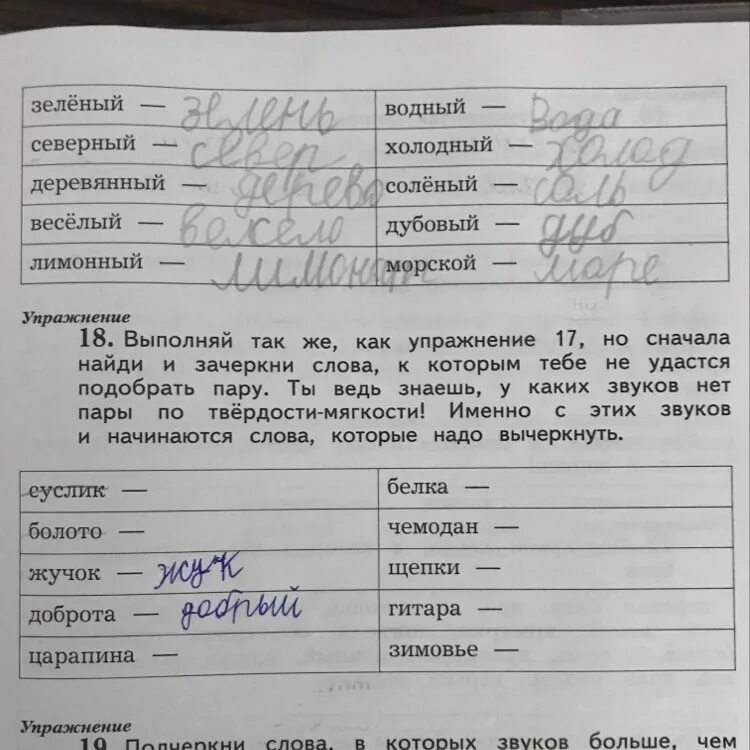 зелёный — зелень водный — вода
северный — север холодный — холод
деревянный — дерево солёный — соль
весёлый — вежело дубовый — дуб
лимонный — лимонат морской — море
Упражнение
18. Выполняй так же, как упражнение 17, но сначала
найди и зачеркни слова, к которым тебе не удастся
подобрать пару. Ты ведь знаешь, у каких звуков нет
пары по твёрдости-мягкости! Именно с этих звуков
и начинаются слова, которые надо вычеркнуть.
суслик — белка —
болото — чемодан —
жучок — жук щепки —
доброта — добрый гитара —
царапина — зимовье —
Упражнение
19. Подчеркни слова, в которых звуков больше, чем